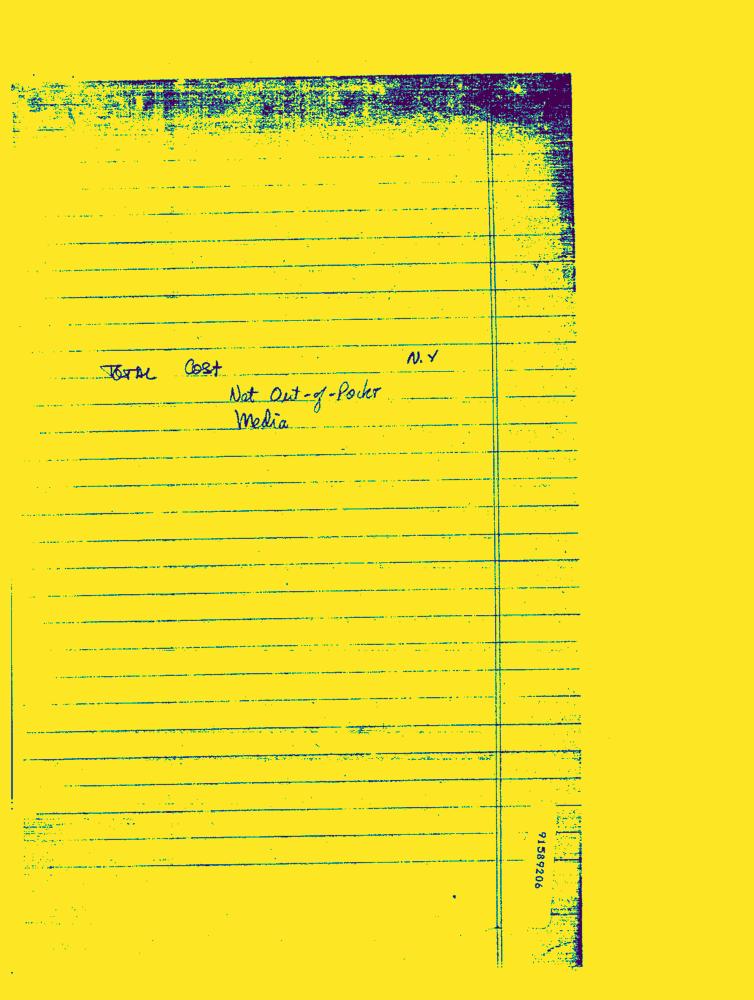 Total Cost N.Y
Net Out-of-Pocket
Media
91589206